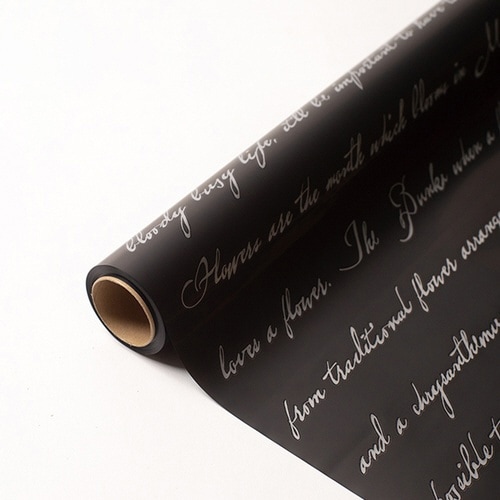 bloody busy life, it'll be important to have t
Flowers are the month which blooms in M
loves a flower. The Dunks when a
from traditional flower arrang
and a chrysanthemu
possible t